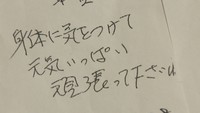 身体に気をつけて
元気いっぱい
頑張って下さい